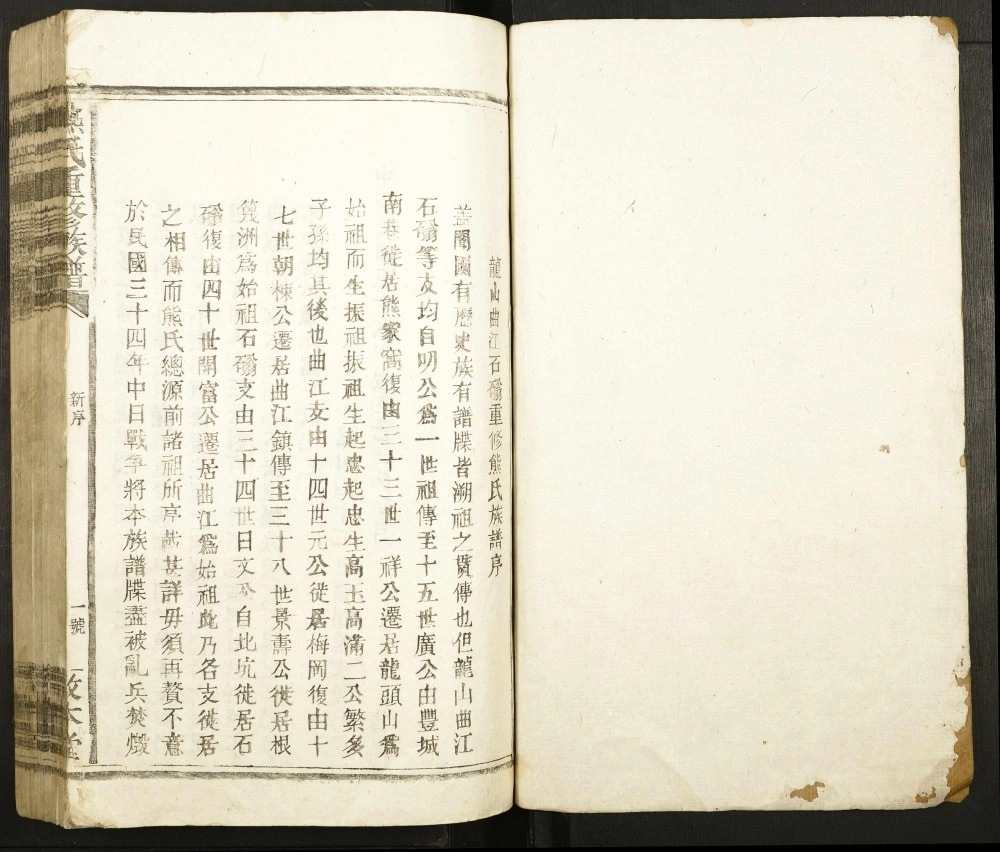 龍山曲江石磷重修熊氏族譜序
蓋聞國有歷史族有譜牒皆溯祖之貫傳也但龍山曲江
石磷等支均自明公爲一世祖傳至十五世廣公由豐城
南巷徙居熊家窩復由三十三世一祥公遷居龍頭山爲
始祖而生振祖振祖生起忠起忠生高玉高滿二公繁多
子孫均其後也曲江支由十四世元公徙居梅岡復由十
七世朝棟公遷居曲江鎮傳至三十八世景壽公徙居根
筧洲爲始祖石磷支由三十四世日文公自北坑徙居石
磷復由四十世開富公遷居曲江爲始祖此乃各支徙居
之相傳而熊氏總源前諸祖所序甚詳毋須再贅不意
於民國三十四年中日戰爭將本族譜牒盡被亂兵焚燬
熊氏重修族譜
新序
一號
敦本堂